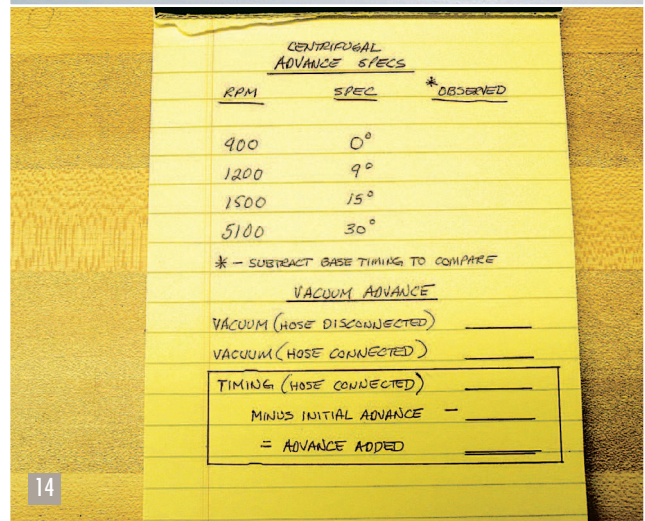 CENTRIFUGAL
ADVANCE SPECS
RPM SPEC *OBSERVED
900 0°
1200 9°
1500 15°
5100 30°
* - SUBTRACT BASE TIMING TO COMPARE
VACUUM ADVANCE
VACUUM (HOSE DISCONNECTED)
VACUUM (HOSE CONNECTED)
TIMING (HOSE CONNECTED)
MINUS INITIAL ADVANCE -
= ADVANCE ADDED
14